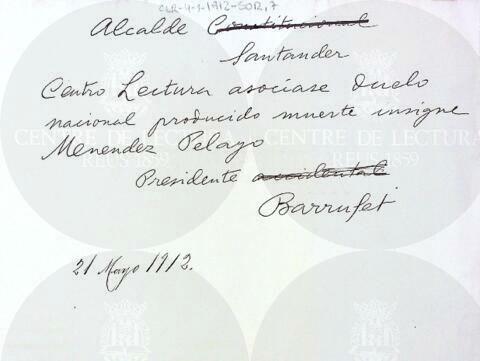 CLR-4-1-1912-SOR,7
Alcalde Constitucional
Santander
Centro Lectura asocíase duelo
nacional producido muerte insigne
Menendez Pelayo
Presidente accidental
Barrufet
21 Mayo 1912.
CENTRE DE LECTURA
REUS 1859
CENTRE DE LECTURA
REUS 1859